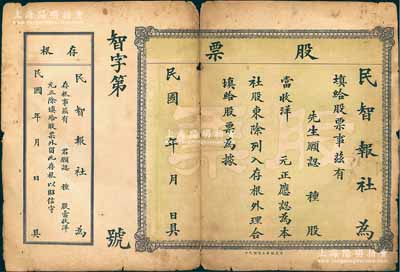 股票
民智報社為
填給股票事茲有
先生願認 種 股
當收洋 元正應認為本
社股東除列入存根外理合
填給股票為據
民國 年 月 日具
智字第 號
存根
民智報社為
存根事茲有 君願認 種 股當收洋
元正除填給股票外留此存根以昭信守
民國 年 月 日具